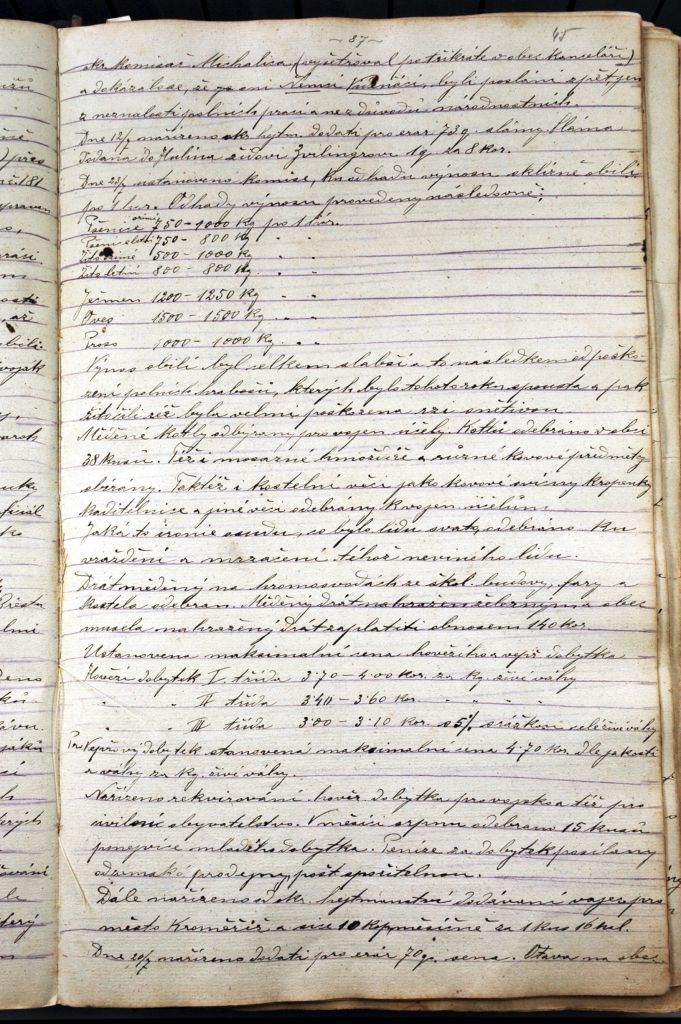 - 87 -
45
okr. komisař Michalica, (vyšetřoval po třikráte v obec. kanceláři)
a dokázalo se, že oni Němci byli posláni zpět jen
z neznalosti polních prací a ne z důvodů národnostních.
Dne 12/7 nařízeno okr. hejtm. dodati pro erár 73 q. slámy. Sláma
dodána do Hulína židovi Zvilingrovi 1 q za 8 kor.
Dne 23/7 ustanovena komise, ku odhadu výnosu sklizně obilí
po 1 har. Odhady výnosu provedeny následovně:
Pšenice ozimá 750 - 1000 kg po 1 har.
Pšen. letní 750 - 800 kg " "
Žito zimné 500 - 1000 kg " "
Žito letní 800 - 800 kg " "
Ječmen 1200 - 1250 kg " "
Oves 1500 - 1500 kg " "
Proso 1000 - 1000 kg " "
Výnos obilí byl celkem slabší a to následkem od poško-
zení polních hrabošů, kterých bylo tohoto roku spousta a pak
žito čili rež byla velmi poškozena rzí snětivou.
Měděné kotly odbírány pro vojen. účely. Kotlů odebráno v obci
38 kusů. Též i mosazné hmoždíře a různé kovové předměty
sbírány. Taktéž i kostelní věci jako kovové svícny kropenky
kaditelnice a jiné věci odebrány k vojen. účelům.
Jaká to ironie osudu, co bylo lidu svaté, odebráno ku
vraždění a mrzačení téhož nevinného lidu.
Drát měděný na hromosvodách ze škol. budovy, fary a
kostela odebrán. Měděný drát nahražen železným, a obec
musela nahražený drát zaplatiti obnosem 140 kor.
Ustanovena maksimalní cena hovězího a vepř. dobytka
Hovězí dobytek I třída 3·70 - 4·00 kor. za kg. živé váhy
" " II třída 3·40 - 3·60 kor. " " "
" " III třída 3·00 - 3·10 kor. s 5% srážkou celé živé váhy
Pro Vepřový dobytek stanovená maksimalní cena 4·70 kor. dle jakosti
a váhy za kg. živé váhy.
Nařízeno rekvirování hověz. dobytka pro vojsko a též pro
civilní obyvatelstvo. V měsíci srpnu odebráno 15 kusů
ponejvíce mladého dobytka. Peníze za dobytek posílány
prodejny pošt. spořitelnou.
Dále nařízeno od okr. hejtmanství dodávání vajec pro
město Kroměříž a sice 10 kop měsíčně za 1 kus 16 hal.
Dne 20/7 nařízeno dodati pro erár 70 q. sena. Otava na obec